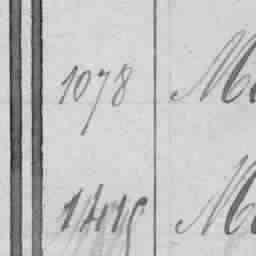 1078 M
1415 M